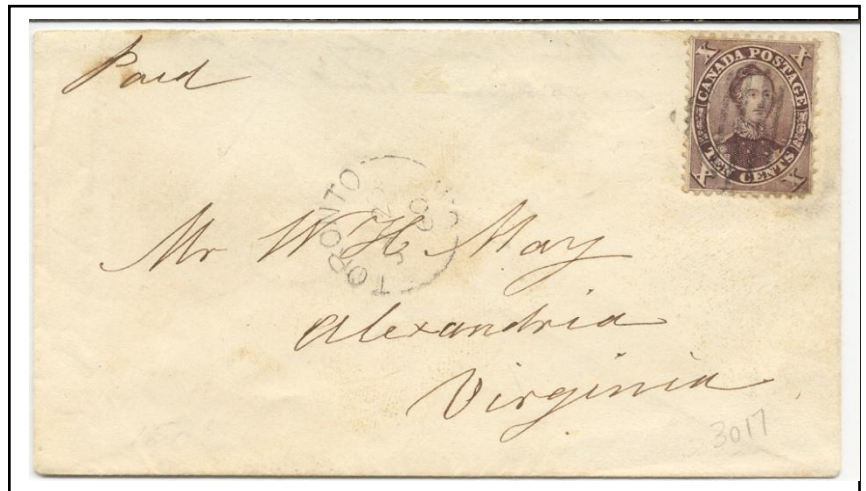 Paid
CANADA POSTAGE
TEN CENTS
X X X X
TORONTO
Mr W H May
Alexandria
Virginia
3017